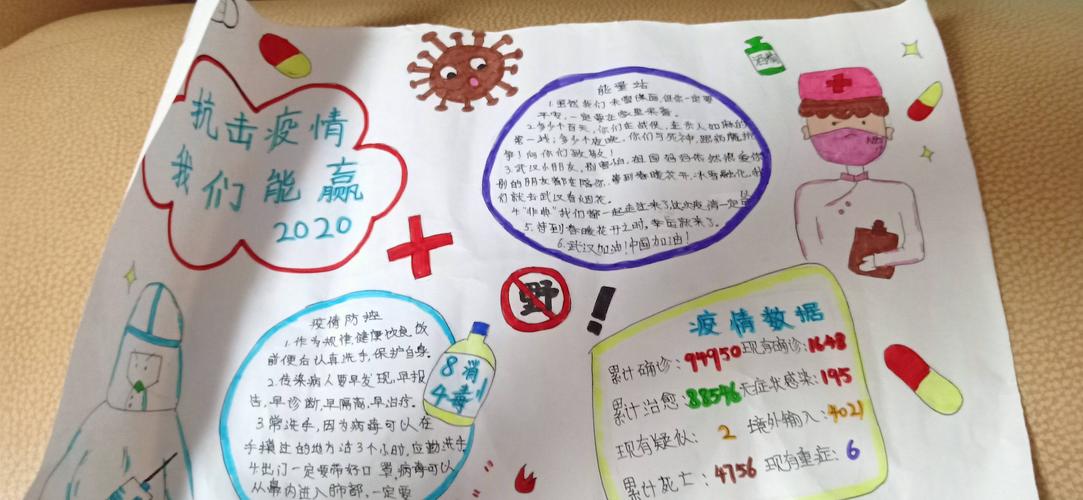 抗击疫情
我们能赢
2020
能量站
1.虽然我们未曾谋面,但你一定要
平安,一定要在哪里来着。
2.多少个白天,你们在战役,
第一线;多少个夜晚,你们与死神,跟病魔抗
争!向你们致敬!
3.武汉小朋友,别害怕,祖国妈妈依然很爱你
别的朋友都在陪你,等到春暖花开,冰雪融化,我
们就去武汉看烟花。
4."非典"我们都一起走过来了,这次疫情一定
5.待到春暖花开之时,幸运就来了。
6.武汉加油!中国加油!
酒精
野!
疫情防控
1.作为规律,健康饮食,饭
前便后认真洗手,保护自身。
2.传染病人要早发现,早报
告,早诊断,早隔离,早治疗。
3.常洗手,因为病毒可以在
手摸过的地方活3个小时,应勤洗手
4.出门一定要带好口罩,病毒可以
从鼻内进入肺部,一定要
84
消毒
疫情数据
累计确诊:94950 现有确诊:1648
累计治愈:88546 无症状感染:195
现有疑似:2 境外输入:4021
累计死亡:4756 现有重症:6